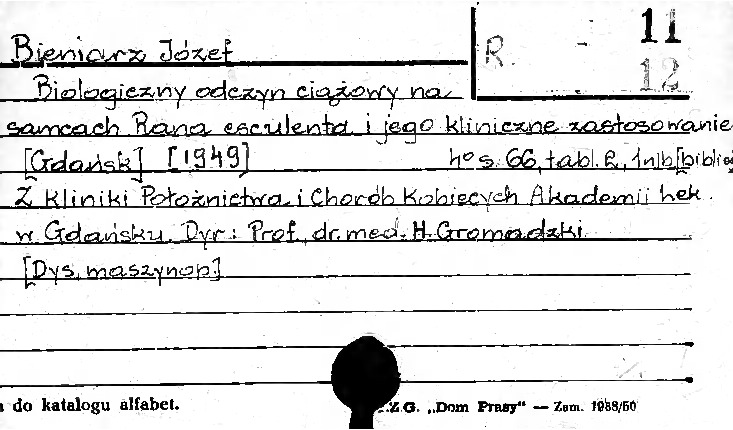 Bieniarz Józef
R. - 11
12
Biologiczny odczyn ciążowy na
samcach Rana esculenta i jego kliniczne zastosowanie
[Gdańsk] [1949] 4° s. 66, tabl. 2, 1 nlb [bibliej
Z Kliniki Położnictwa i Chorób Kobiecych Akademii Lek.
w Gdańsku. Dyr.: Prof. dr. med. H. Gromadzki
[Dys. maszynop.]
do katalogu alfabet.
Z.G. „Dom Prasy" — Zam. 1938/50